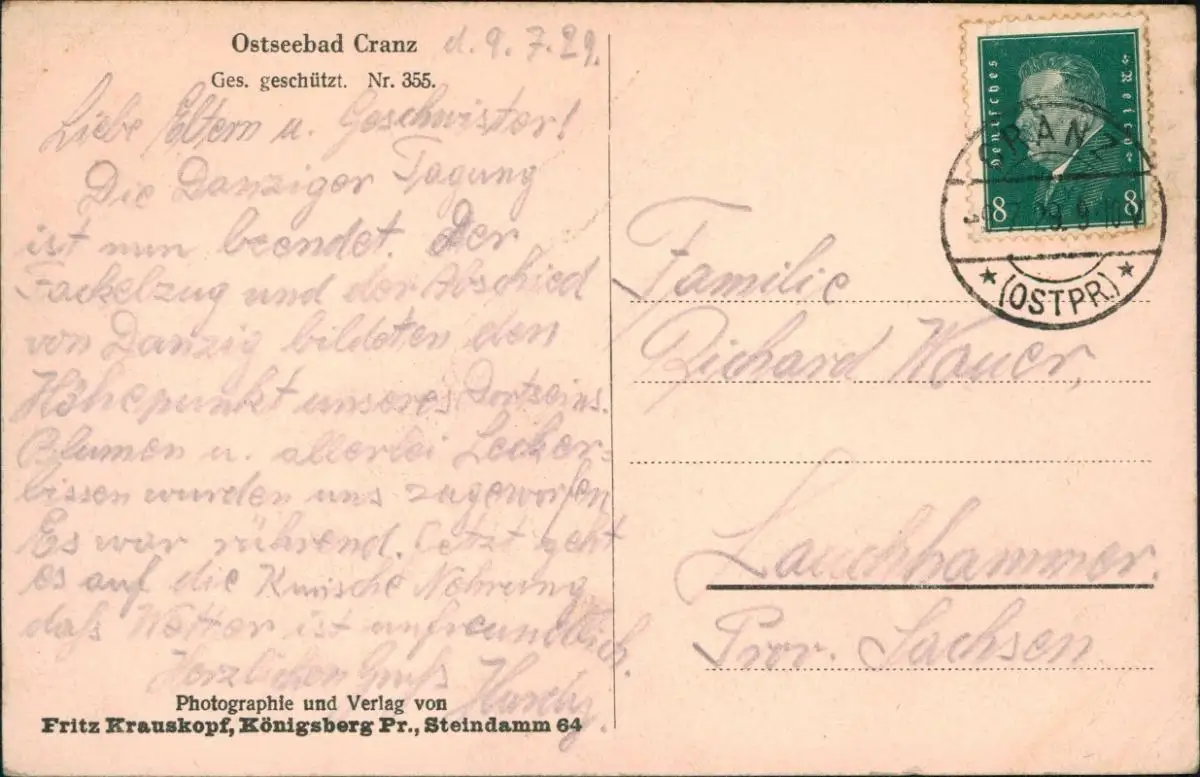 Ostseebad Cranz d. 9. 7. 29.
Ges. geschützt. Nr. 355.
Liebe Eltern u. Geschwister!
Die Danziger Tagung
ist nun beendet. Der
Fackelzug und der Abschied
von Danzig bildeten den
Höhepunkt unseres Dortseins.
Blumen u. allerlei Lecker-
bissen wurden uns zugeworfen
Es war rührend. Jetzt geht
es auf die Kurische Nehrung
daß Wetter ist unfreundlich.
Herzlichen Gruß
Photographie und Verlag von
Fritz Krauskopf, Königsberg Pr., Steindamm 64
Deutsches Reich
8 8
CRANZ
(OSTPR.)
Familie
Richard Wauer,
Lauchhammer.
Prov. Sachsen